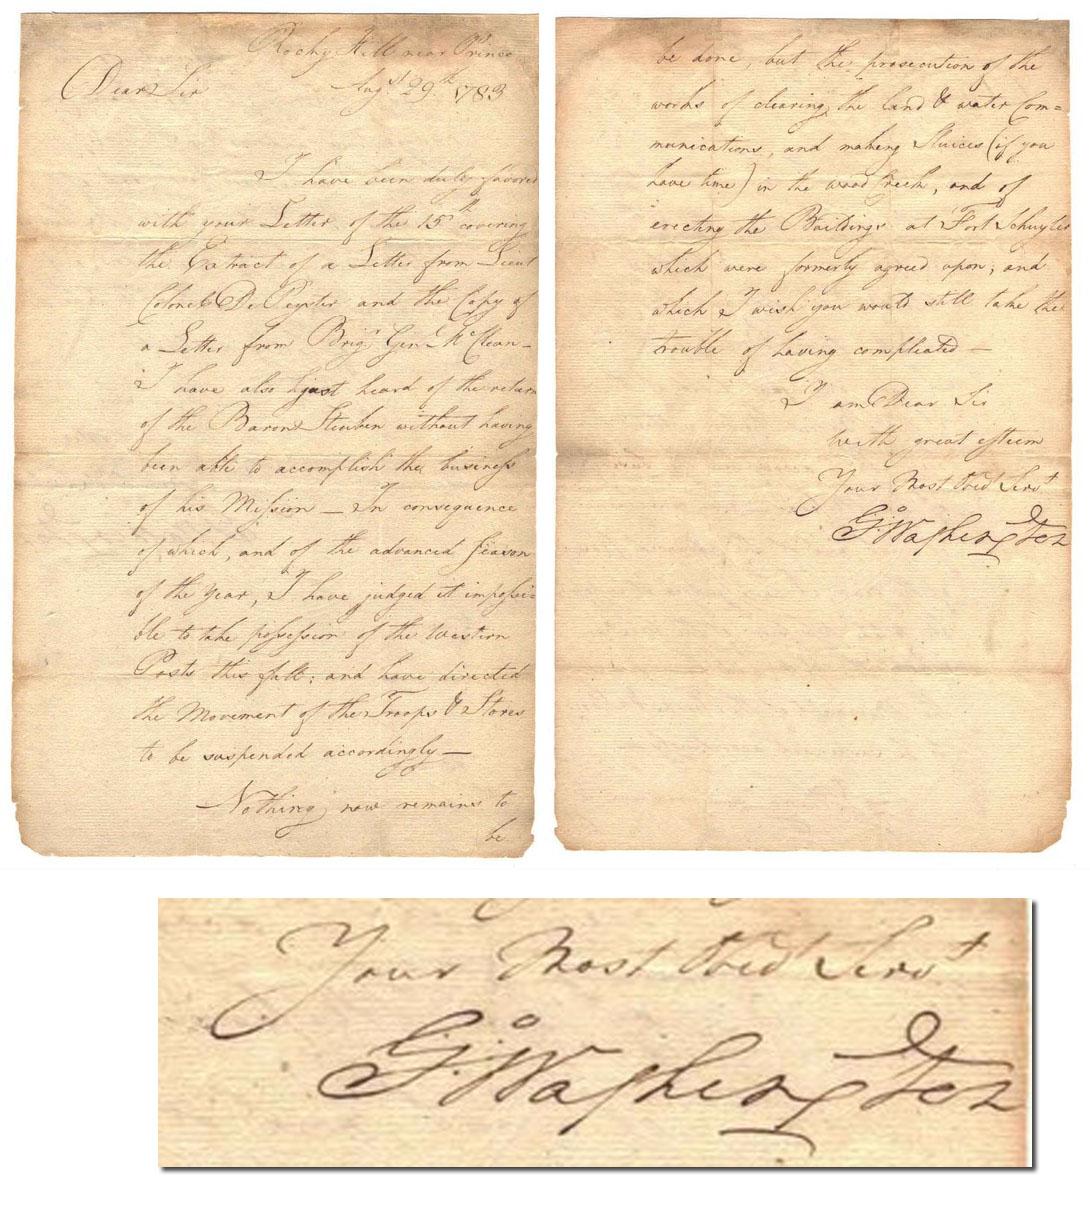 Rocky Hill near Prince
Augst 29th 1783
Dear Sir
I have been duly favored
with your Letter of the 15th covering
the Extract of a Letter from Lieut
Colonel De Peyster and the Copy of
a Letter from Brigr Genl McClean —
I have also just heard of the return
of the Baron Steuben without having
been able to accomplish the business
of his Mission — In consequence
of which, and of the advanced Season
of the year, I have judged it impossi=
ble to take possession of the Western
Posts this fall; and have directed
the Movement of the Troops & Stores
to be suspended accordingly —
Nothing now remains to
be
be done, but the prosecution of the
works of clearing the land & water Com=
munications, and making Sluices (if you
have time) in the wood Creek, and of
erecting the Buildings at Fort Schuyler
which were formerly agreed upon; and
which I wish you would still take the
trouble of having compleated —
I am Dear Sir
with great esteem
Your Most Obed Servt
Go: Washington
Your Most Obed Servt
Go: Washington